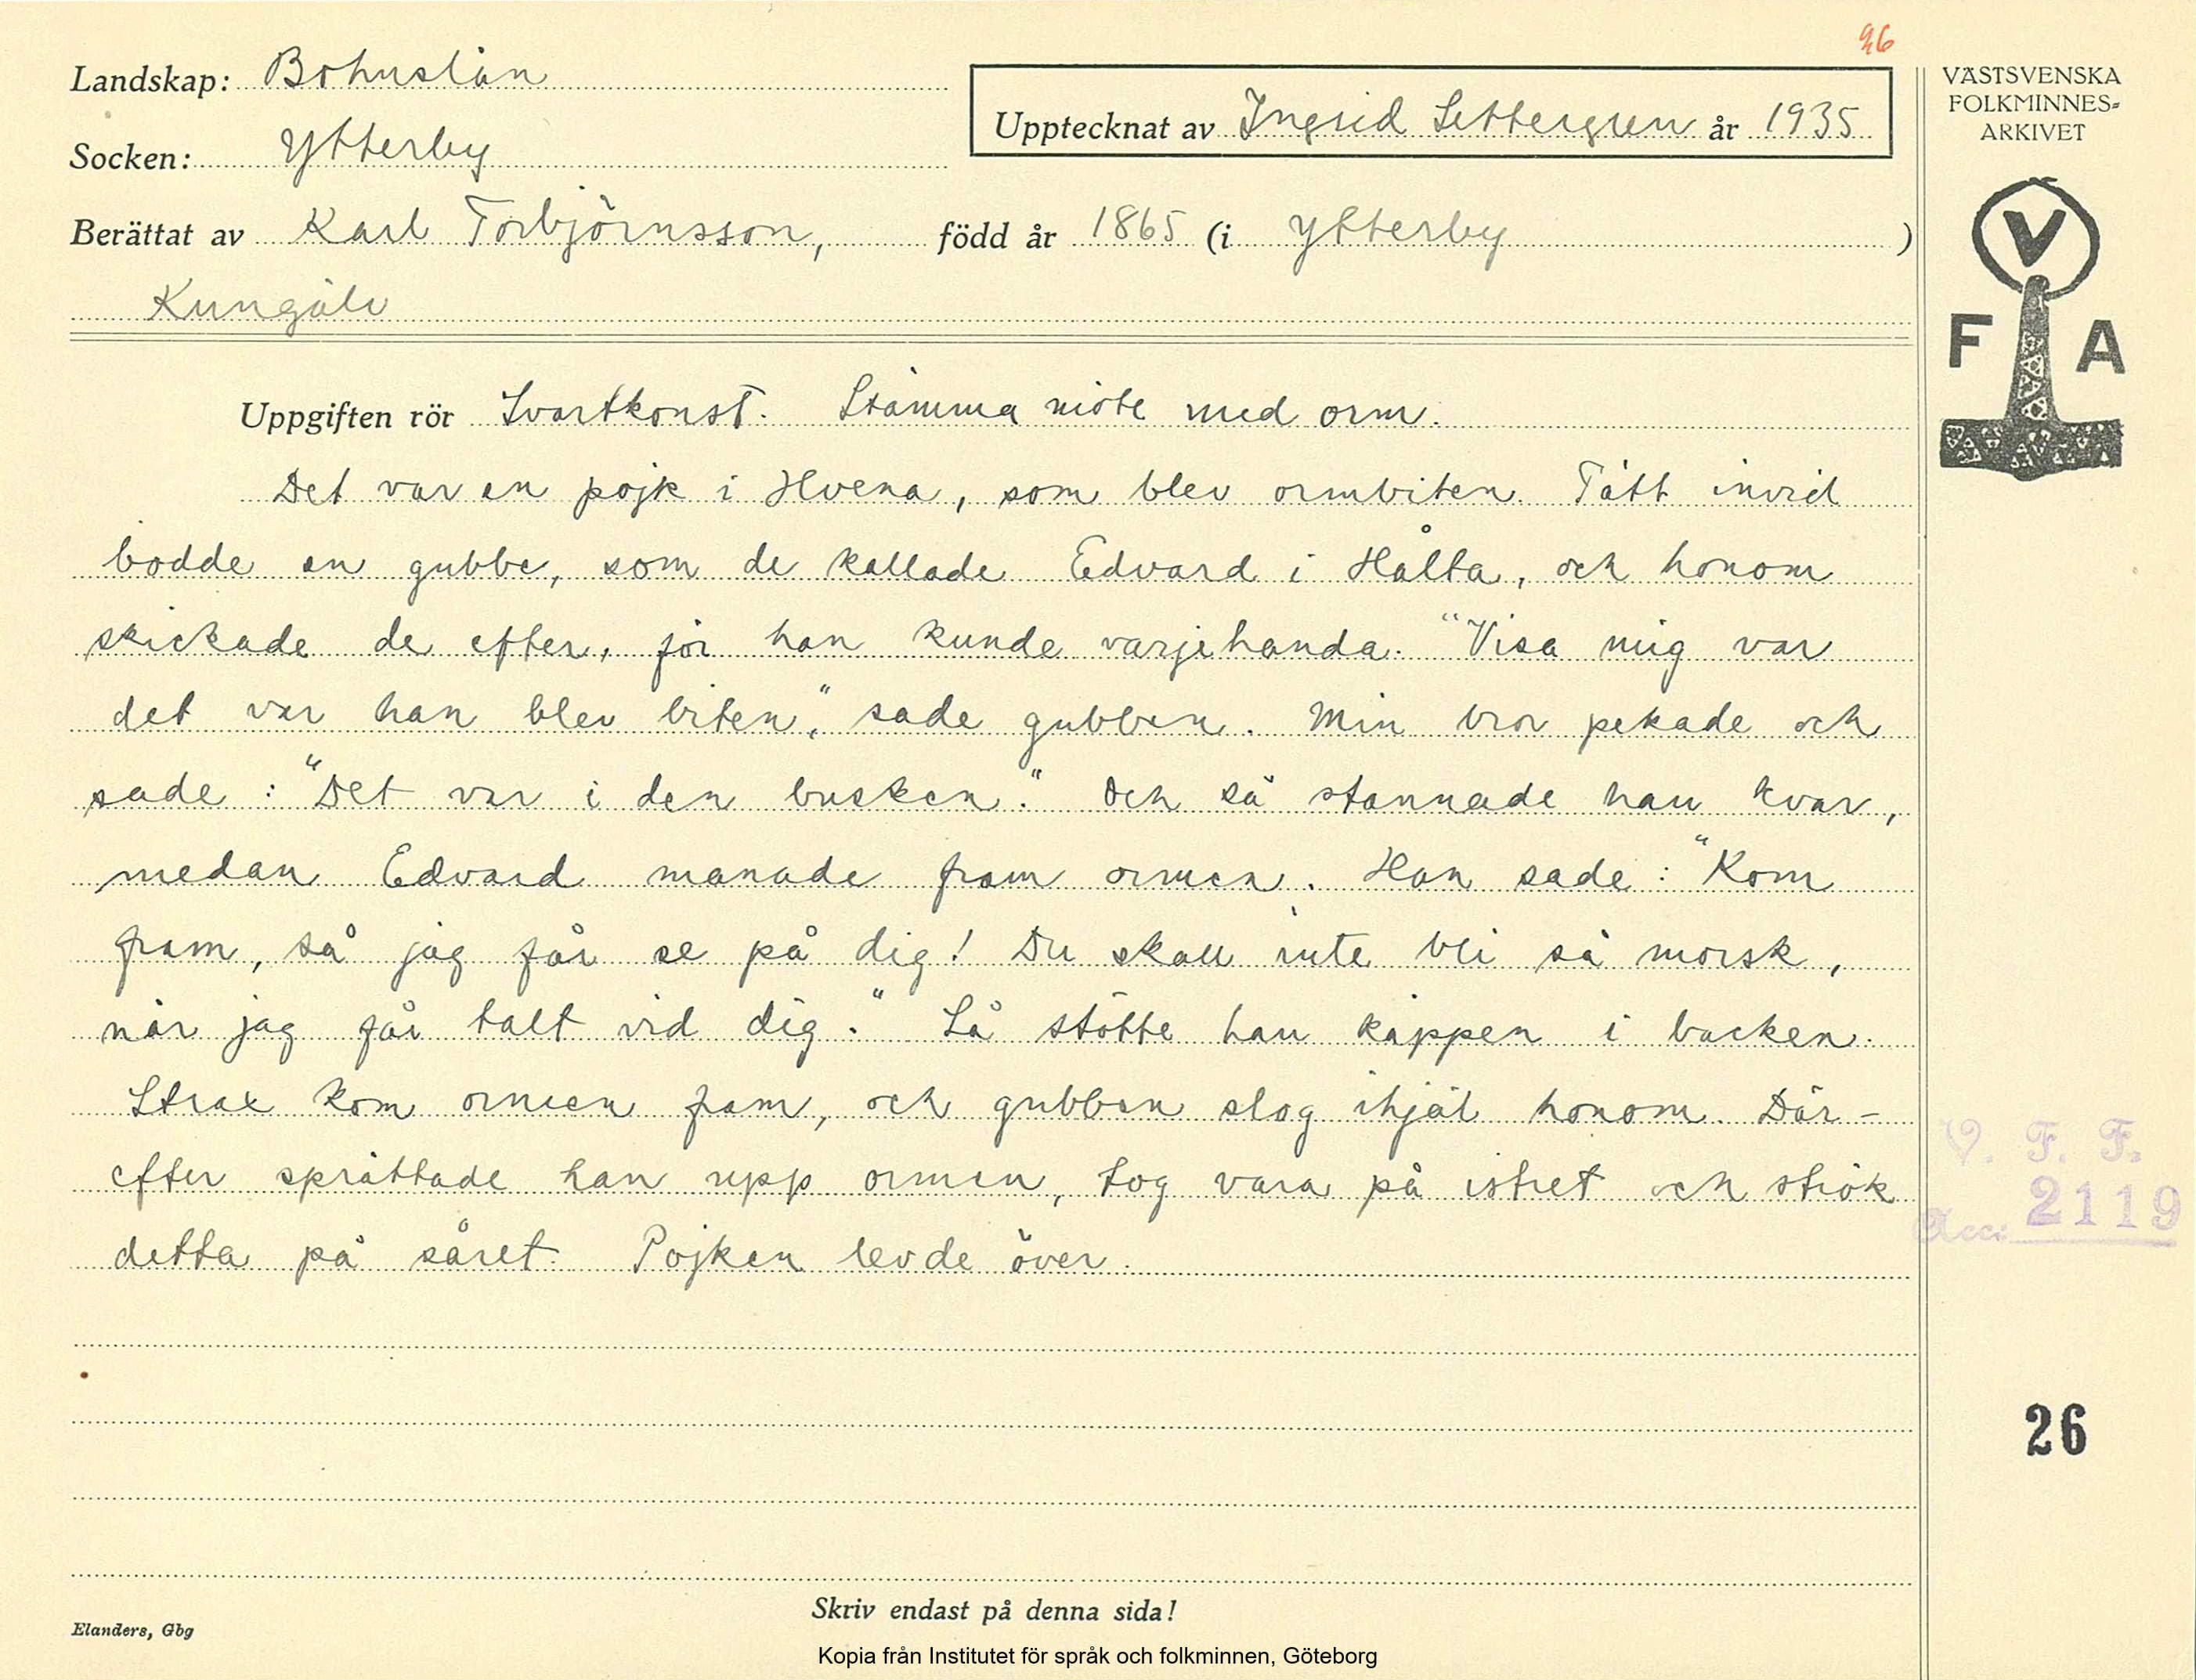 26
Landskap: Bohuslän
Upptecknat av Ingrid Settergren år 1935
Socken: Ytterby
Berättat av Karl Torbjörnsson, född år 1865 (i Ytterby )
Kungälv
Uppgiften rör Svartkonst. Stämma möte med orm.
Det var en pojk i Hvena, som blev ormbiten. Tätt invid
bodde en gubbe, som de kallade Edvard i Hålta, och honom
skickade de efter, för han kunde varjehanda. "Visa mig var
det var han blev biten," sade gubben. Min bror pekade och
sade: "Det var i den busken." Och så stannade han kvar,
medan Edvard manade fram ormen. Han sade: "Kom
fram, så jag får se på dig! Du skall inte bli så morsk,
när jag får talt vid dig." Så stötte han käppen i backen.
Strax kom ormen fram, och gubben slog ihjäl honom. Där-
efter sprättade han upp ormen, tog vara på istret och strök
detta på såret. Pojken levde över.
Skriv endast på denna sida!
Elanders, Gbg
Kopia från Institutet för språk och folkminnen, Göteborg
VÄSTSVENSKA
FOLKMINNES-
ARKIVET
V
F A
V. F. F.
Acc. 2119
26